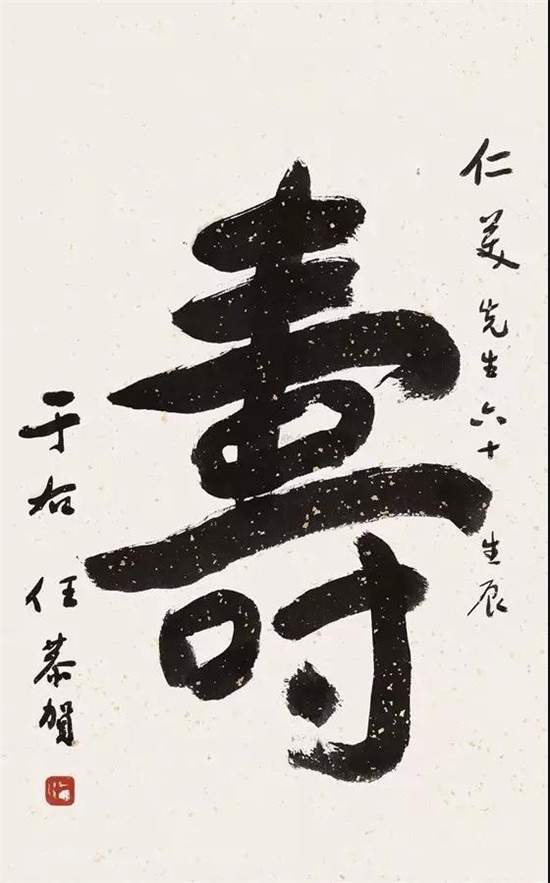 仁美先生六十生辰
壽
于右任恭賀